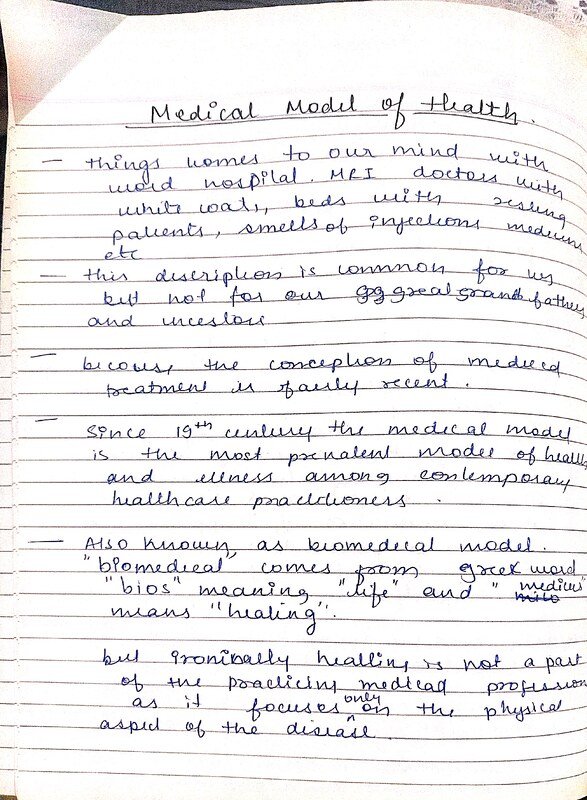 Medical Model of Health.
— things comes to our mind with
word hospital. MRI doctors with
white coats, beds with resting
patients, smells of injections medicines
etc
— this description is common for us
but not for our great grand fathers
and incestors
— becouse the conception of medical
treatment is fairly recent.
— Since 19th century the medical model
is the most prevalent model of health
and illness among contemporary
healthcare practitioners.
— Also known as biomedical model.
"biomedical" comes from greek word
"bios" meaning "life" and "medicus"
means "healing".
but ironically healling is not a part
of the practicing medical profession
as it focuses only on the physical
aspect of the disease.